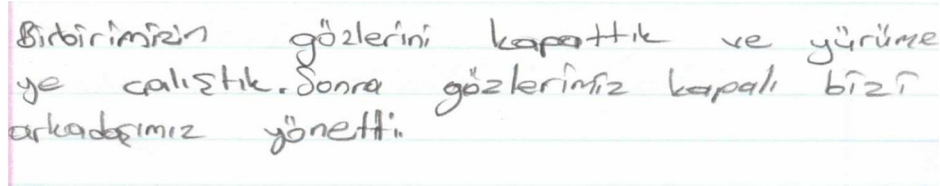 Birbirimizin gözlerini kapattık ve yürüme
ye çalıştık. Sonra gözlerimiz kapalı bizi
arkadaşımız yönetti.